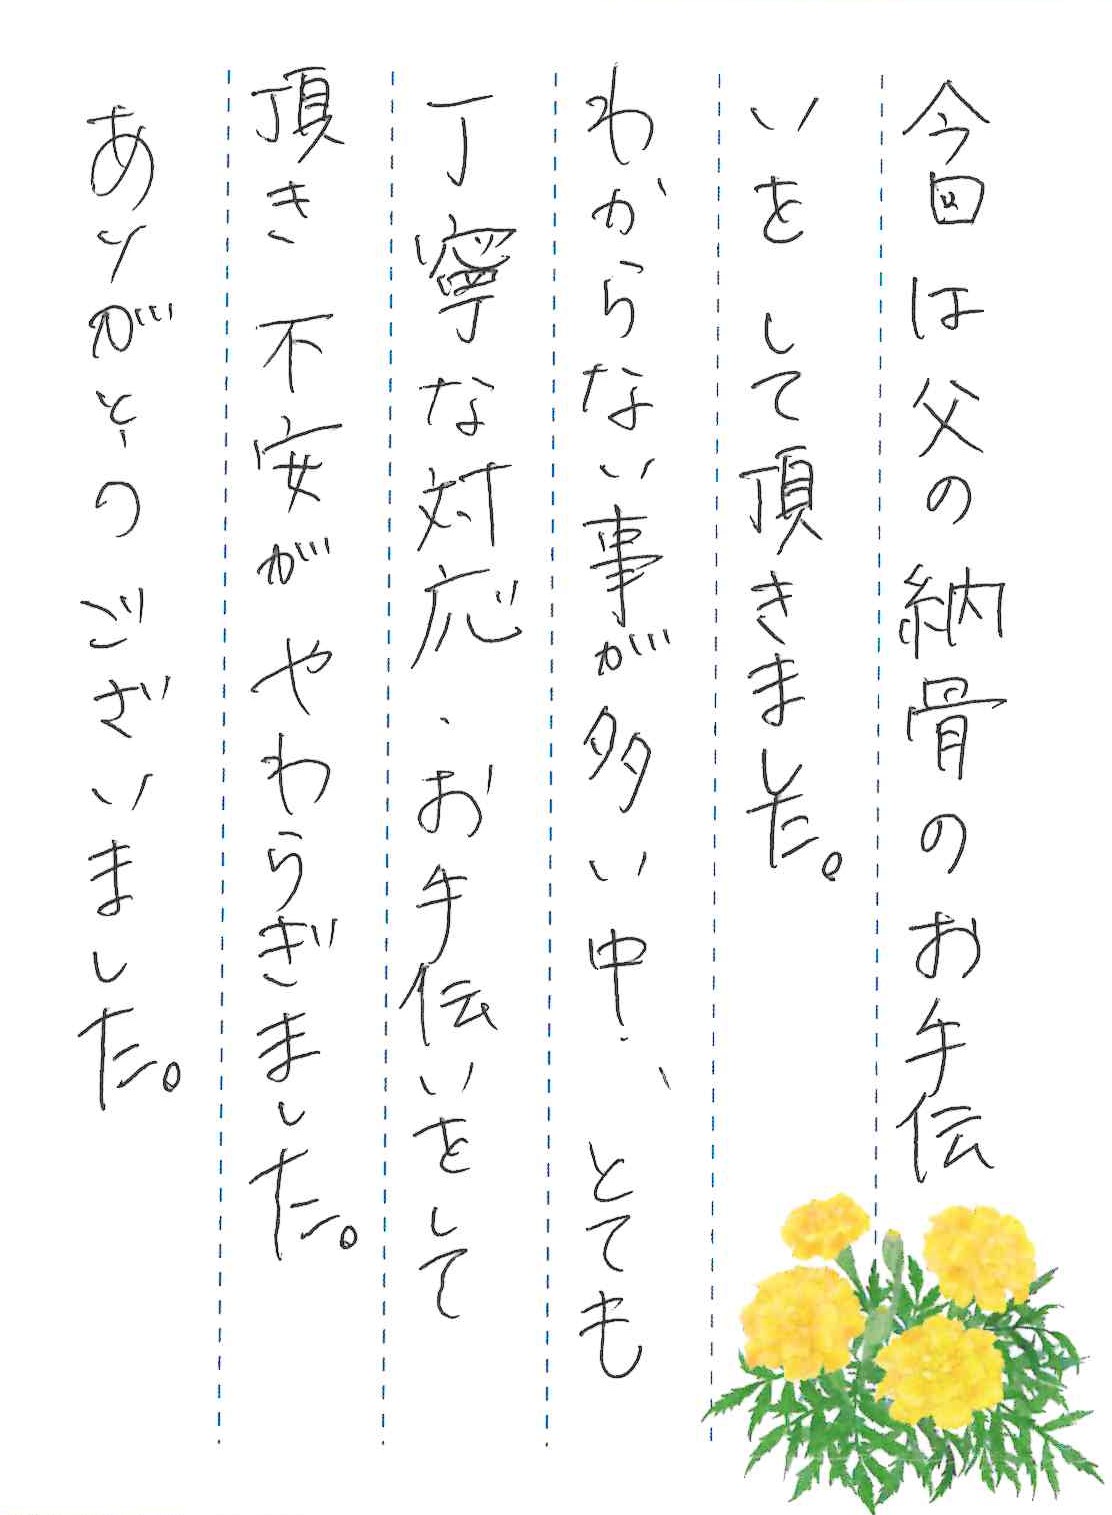 今回は父の納骨のお手伝
いをして頂きました。
わからない事が多い中、とても
丁寧な対応、お手伝いをして
頂き不安がやわらぎました。
ありがとうございました。